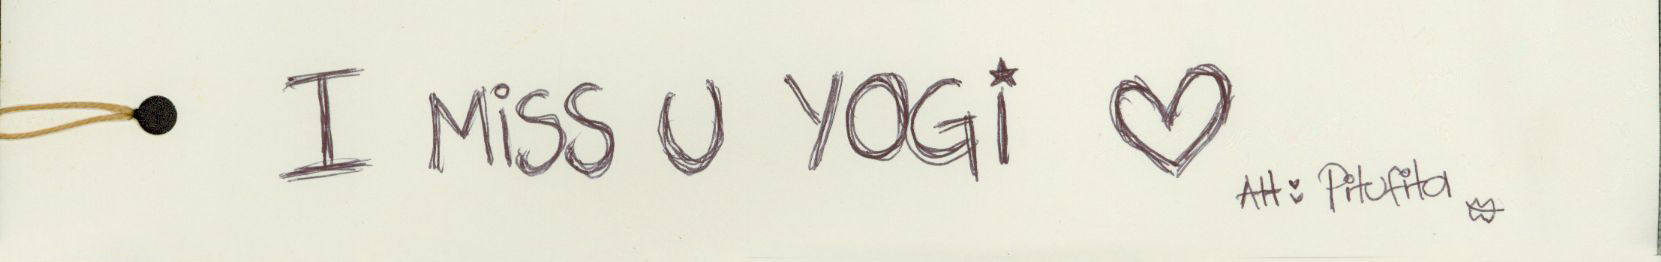 I MiSS U YOGi ♡
Att: Pitufita